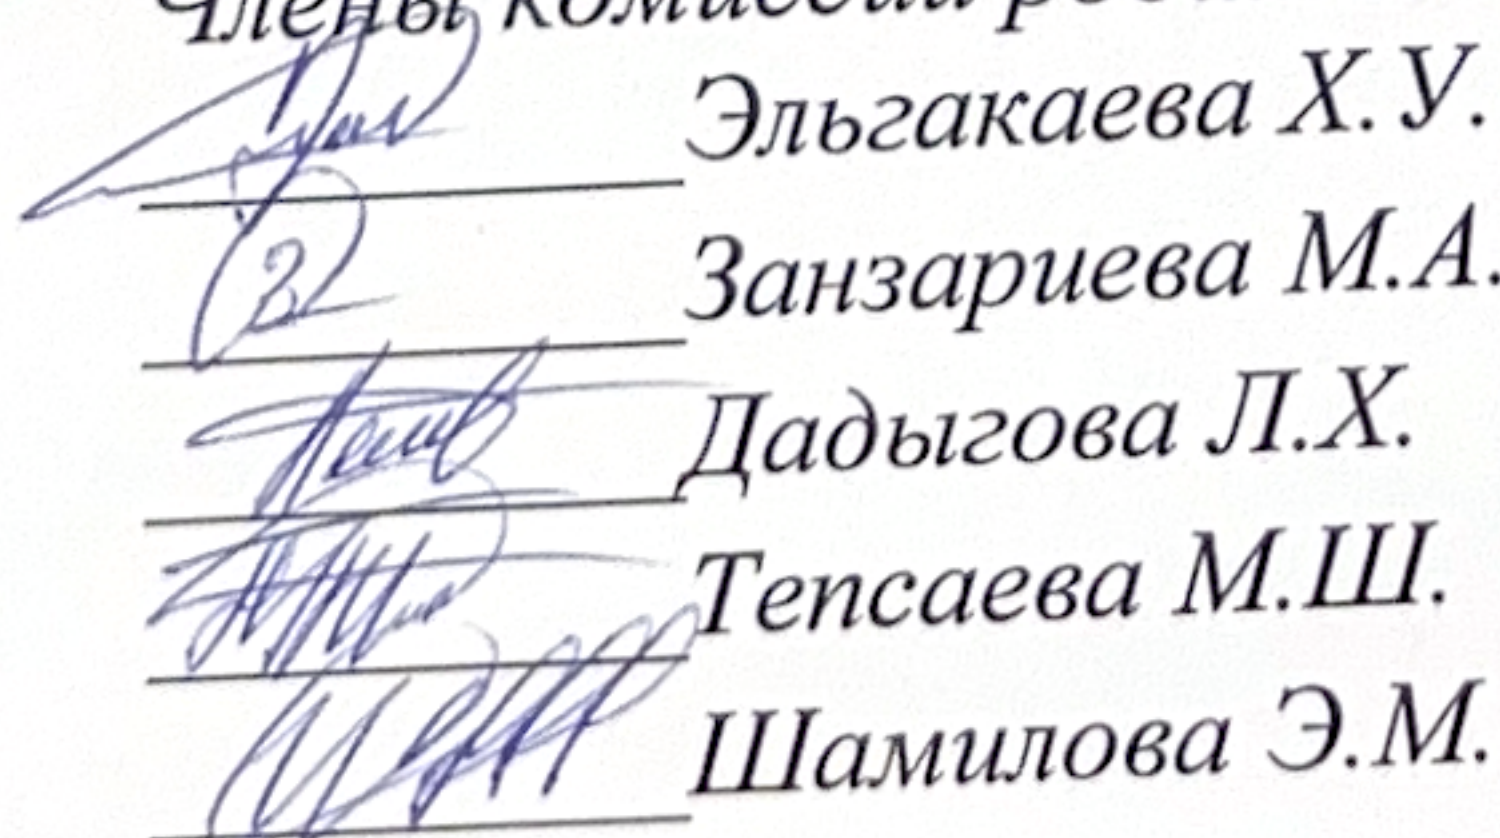 Члены комиссии
Эльгакаева Х.У.
Занзариева М.А.
Дадыгова Л.Х.
Тепсаева М.Ш.
Шамилова Э.М.